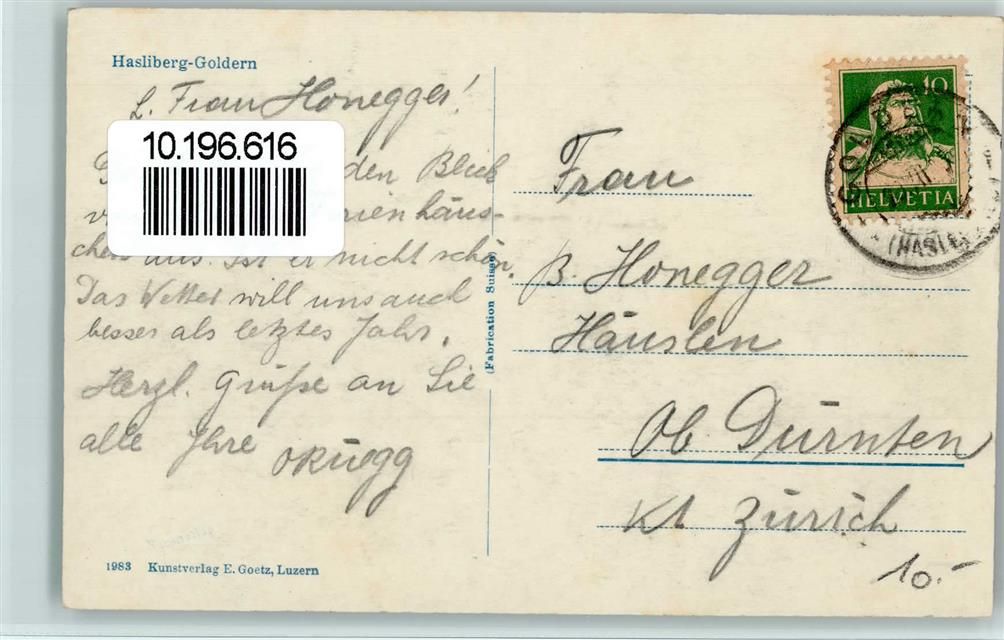 Hasliberg-Goldern
L. Frau Honegger!
10.196.616
den Blick
rienhäus-
chens aus. Ist er nicht schön.
Das Wetter will uns auch
besser als letztes Jahr.
Herzl. Grüße an Sie
alle Ihre ORüegg
1983 Kunstverlag E. Goetz, Luzern
(Fabrication Suisse)
10
HELVETIA
GOLDERN
(HASLI
Frau
B. Honegger
Häuslen
Ob. Dürnten
Kt Zürich
10.-